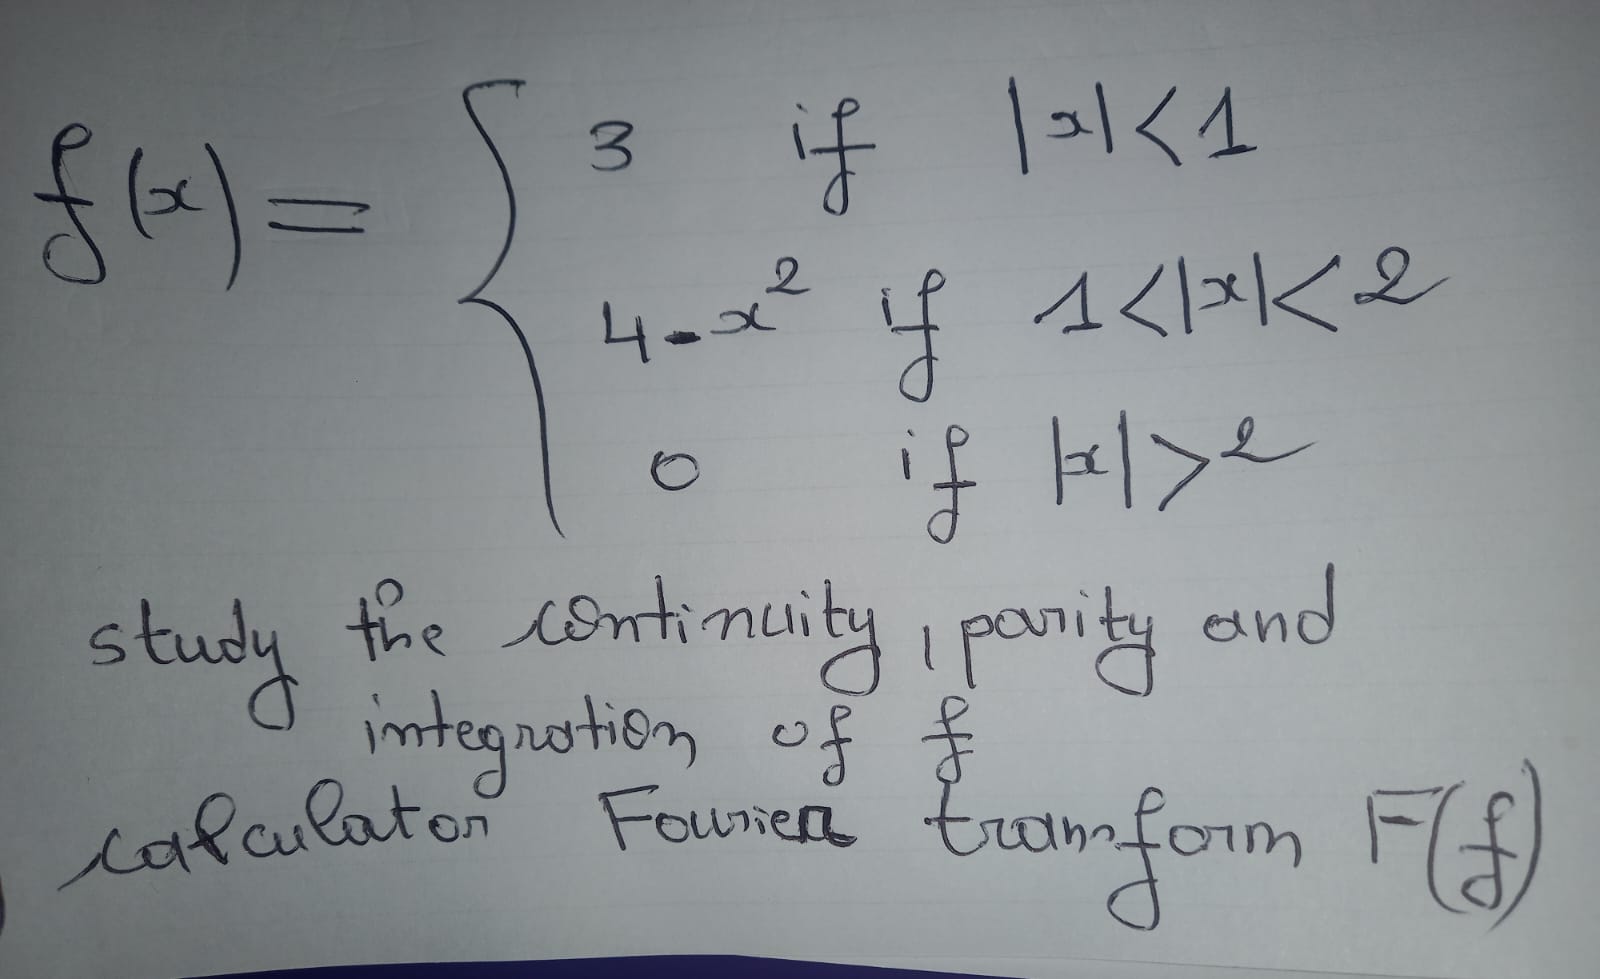 f(x) = { 3 if |x| < 1
4 - x² if 1 < |x| < 2
0 if |x| > 2
study the continuity, parity and
integration of f
calculator Fourier transform F(f)